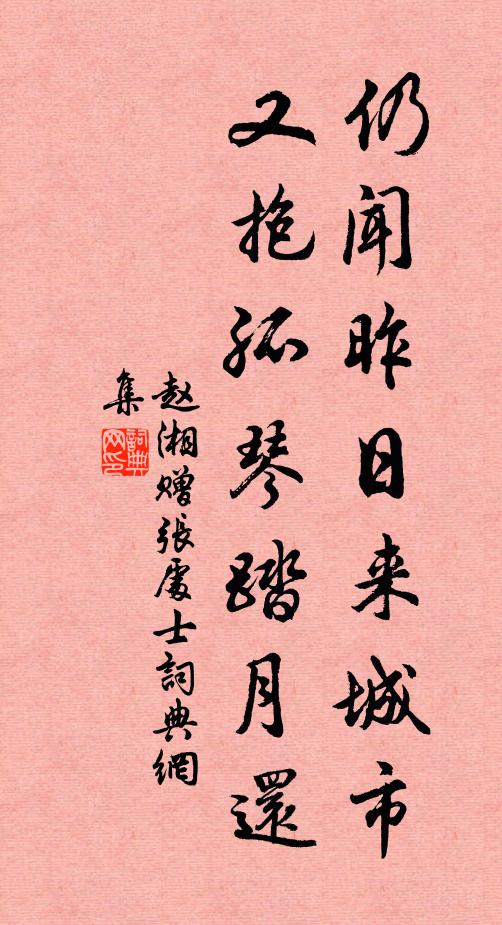 仍闻昨日来城市
又抱孤琴踏月還
赵湘赠張處士詞典網
集
詞典
网印